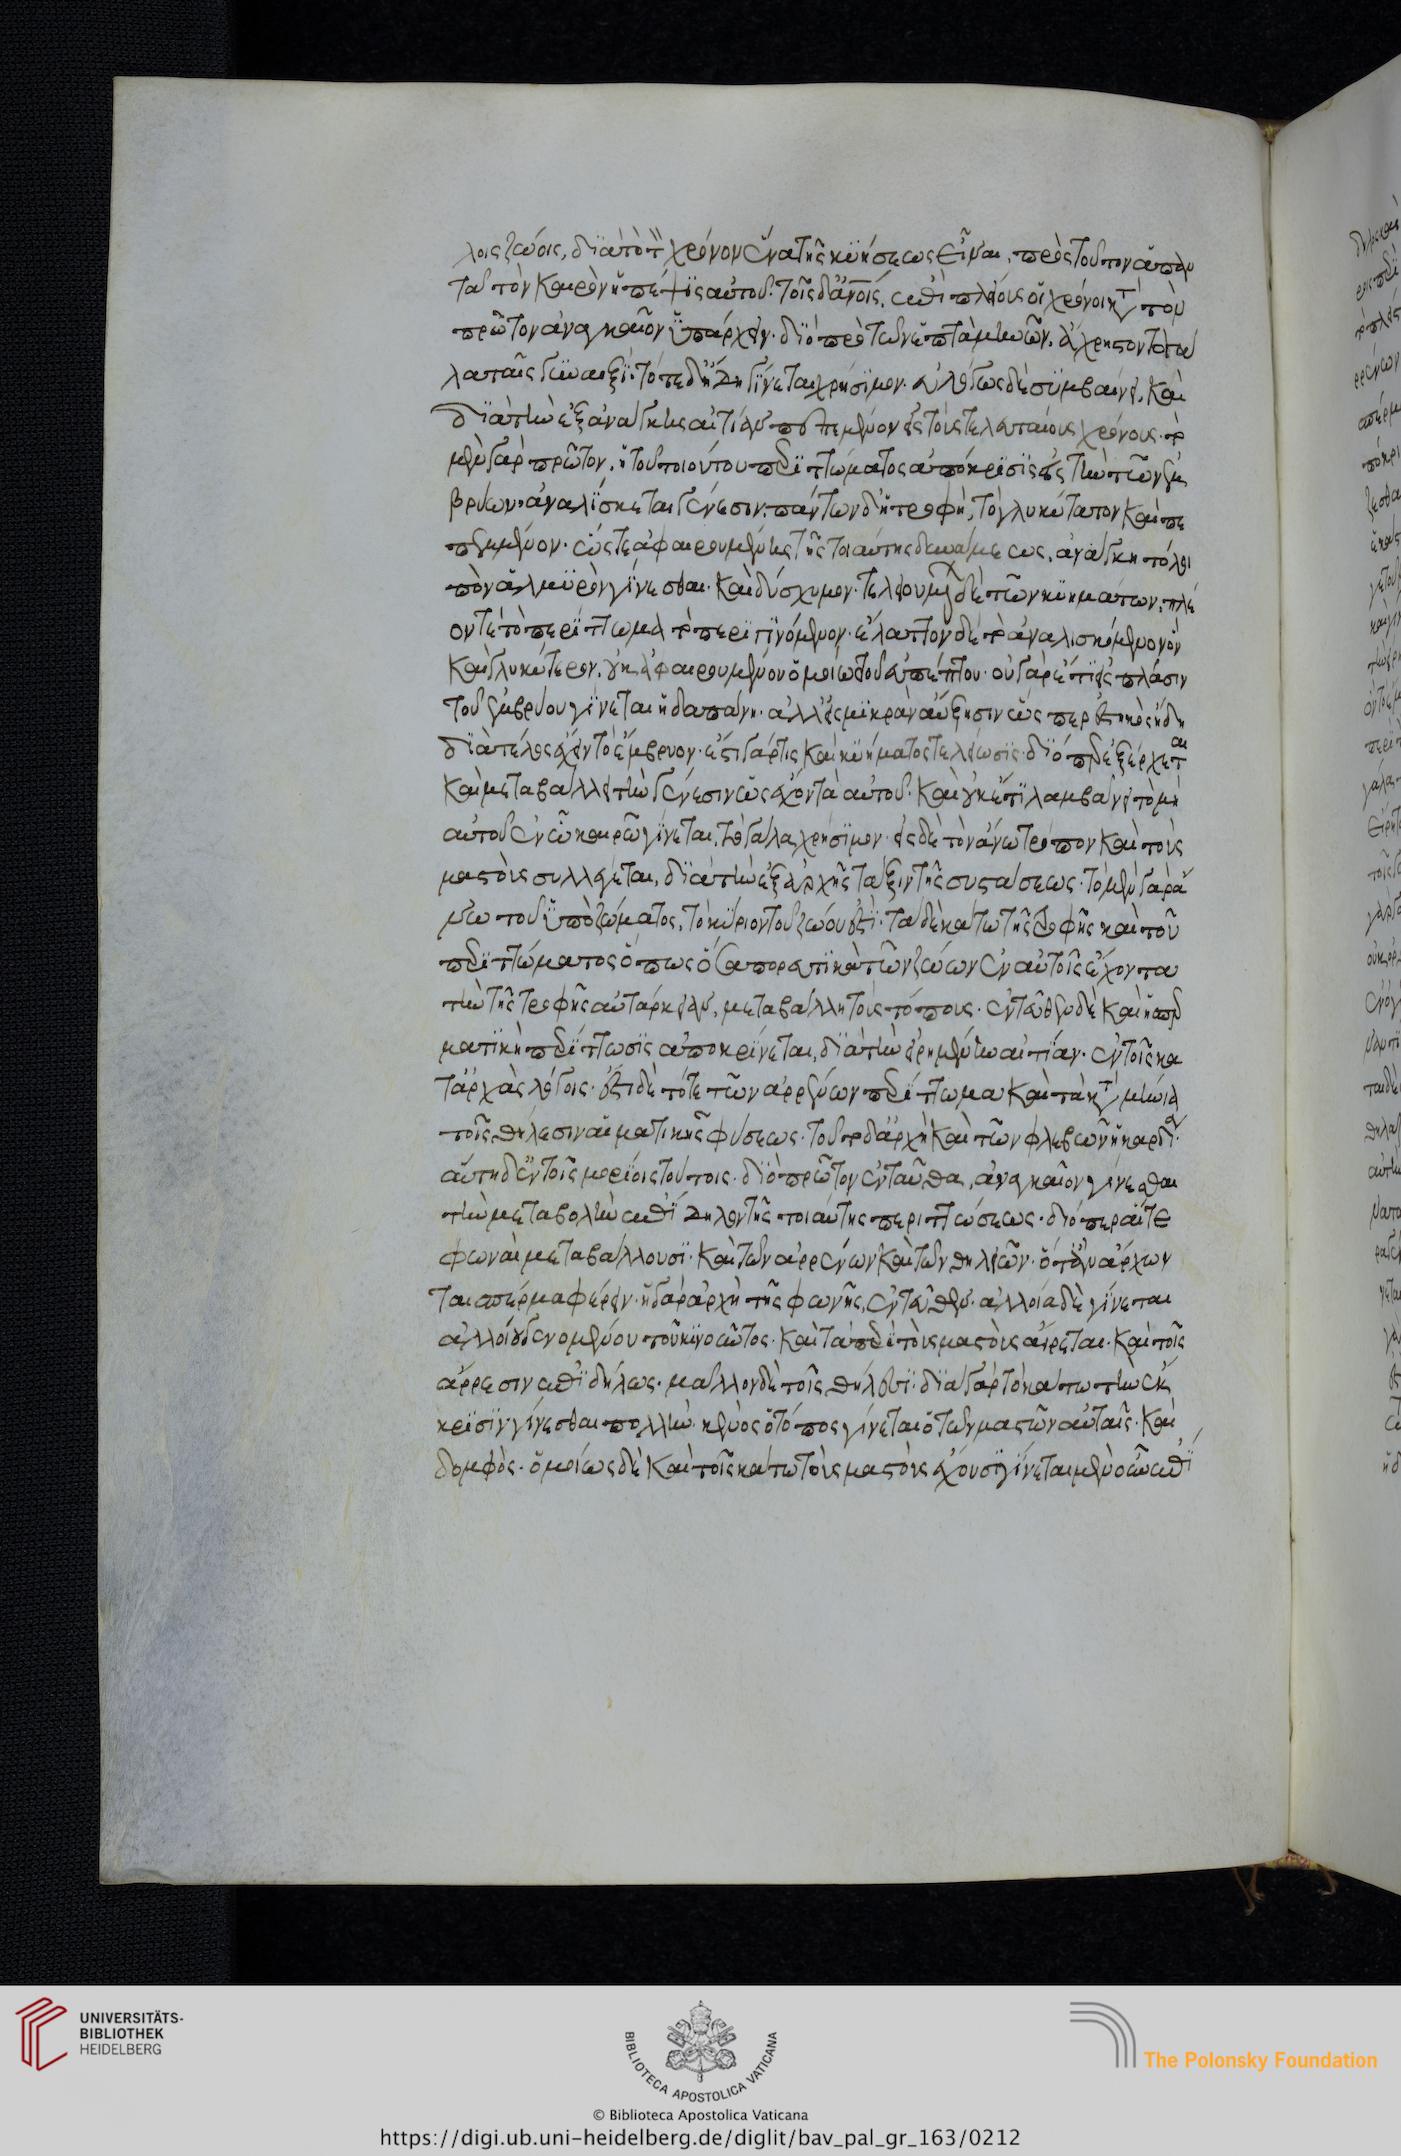 λοις ζώοις, διὰ τὸ τὸν χρόνον ἕνα τῆς κυήσεως εἶναι, πρὸς τοῦτον ἀπαν
τᾶ τὸν καιρὸν ἡ πέψις αὐτοῦ. τοῖς δ' ἀνοις, ἐπεὶ πλείους οἱ χρόνοι κτ τὸν
πρῶτον ἀναγκαῖον ὑπάρχειν. διὸ πρὸ τῶν ἑπτὰ μηνῶν, ἄχρηστον τὸ γά
λα ταῖς γυναιξί. τότε δ' ἤδη γίνεται χρήσιμον. εὐλόγως δὲ συμβαίνει, καὶ
διὰ τὴν ἐξ ἀνάγκης αἰτίαν πεπεμμένον εἰς τοὺς τελευταίους χρόνους. τὸ
μὲν γὰρ πρῶτον, ἡ τοῦ τοιούτου περιττώματος ἀπόκρισις εἰς τὴν τῶν ἐμ
βρύων ἀναλίσκεται γένεσιν. πάντων δ' ἡ τροφὴ, τὸ γλυκύτατον καὶ πε
πεμμένον. ὥστε ἀφαιρουμένης τῆς τοιαύτης δυνάμεως, ἀνάγκη τὸ λοι
πὸν ἁλμυρὸν γίνεσθαι. καὶ δύσχυμον. τελειουμένων δὲ τῶν κυημάτων, πλέ
ον τε τὸ περίττωμα τὸ περιγινόμενον. ἔλαττον δὲ τὸ ἀναλισκόμενον ὂν
καὶ γλυκύτερον. οὐκ ἀφαιρουμένου ὁμοίως τοῦ εὐπέπτου. οὐ γὰρ ἔτι εἰς πλάσιν
τοῦ ἐμβρύου γίνεται ἡ δαπάνη. ἀλλ' εἰς μικρὰν αὔξησιν ὥσπερ ἑστηκὸς ἤδη
διὰ τέλος ἔχειν τὸ ἔμβρυον. ἔστι γάρ τις καὶ κυήματος τελείωσις. διόπερ ἐξέρχεται
καὶ μεταβάλλει τὴν γένεσιν ὡς ἔχον τὰ αὐτοῦ. καὶ οὐκέτι λαμβάνει τὸ μὴ
αὐτοῦ ἐν ὧ καιρῶ γίνεται, τὸ γάλα χρήσιμον. εἰς δὲ τὸν ἄνω τρόπον καὶ τοὺς
μαστοὺς συλλέγεται, διὰ τὴν ἐξ ἀρχῆς τάξιν τῆς συστάσεως. τὸ μὲν γὰρ ἄ
νω τοῦ ὑποζώματος, τὸ κύριον τοῦ ζώου ἐστί. τὸ δὲ κάτω τῆς τροφῆς καὶ τοῦ
περιττώματος ὅπως ὅσα πορευτικὰ τῶν ζώων ἐν αὐτοῖς ἔχοντα
τὴν τῆς τροφῆς αὐτάρκειαν, μεταβάλλη τοὺς τόπους. ἐντεῦθεν δὲ καὶ ἡ σπερ
ματικὴ περίττωσις ἀποκρίνεται, διὰ τὴν εἰρημένην αἰτίαν. ἐν τοῖς κα
τ' ἀρχὰς λόγοις. ἔστι δὲ τό τε τῶν ἀρρένων περίττωμα καὶ τὰ κτ μήνια
τοῖς θήλεσιν αἱματικῆς φύσεως. τούτου δ' ἀρχὴ καὶ τῶν φλεβῶν ἡ καρδία.
αὕτη δ' ἐν τοῖς μορίοις τούτοις. διὸ πρῶτον ἐνταῦθα, ἀναγκαῖον γίνεσθαι
τὴν μεταβολὴν ἐπίδηλον τῆς τοιαύτης περιττώσεως. διόπερ αἵ τε
φωναὶ μεταβάλλουσι. καὶ τῶν ἀρρένων καὶ τῶν θηλειῶν. ὅταν ἄρχων
ται σπέρμα φέρειν. ἡ γὰρ ἀρχὴ τῆς φωνῆς, ἐντεῦθεν. ἀλλοία δὲ γίνεται
ἀλλοίου γενομένου τοῦ κινοῦντος. καὶ τὰ περὶ τοὺς μαστοὺς αἴρεται. καὶ τοῖς
ἄρρεσιν ἐπιδήλως. μᾶλλον δὲ τοῖς θήλεσι. διὰ γὰρ τὸ κάτω τὴν ἔκ
κρισιν γίνεσθαι πολλὴν. κενὸς ὁ τόπος γίνεται ὁ τῶν μαστῶν αὐταῖς. καὶ
σομφὸς. ὁμοίως δὲ καὶ τοῖς κάτω τοὺς μαστοὺς ἔχουσι γίνεται μὲν οὖν ἐπί
UNIVERSITÄTS-
BIBLIOTHEK
HEIDELBERG
BIBLIOTECA APOSTOLICA VATICANA
© Biblioteca Apostolica Vaticana
The Polonsky Foundation
https://digi.ub.uni-heidelberg.de/diglit/bav_pal_gr_163/0212